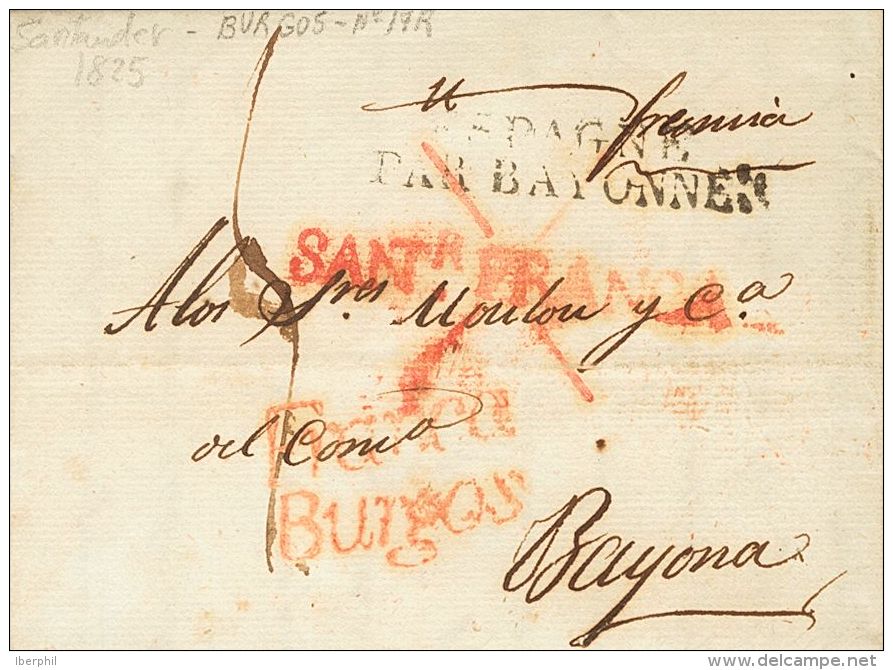 Santander - BURGOS - Nº 17R
1825
francia
ESPAGNE
PAR BAYONNE
SANTR FRANCA
A los Sres Moulou y Ca
Franca
del Comco
Burgos
Bayona
Iberphil
www.delcampe.net